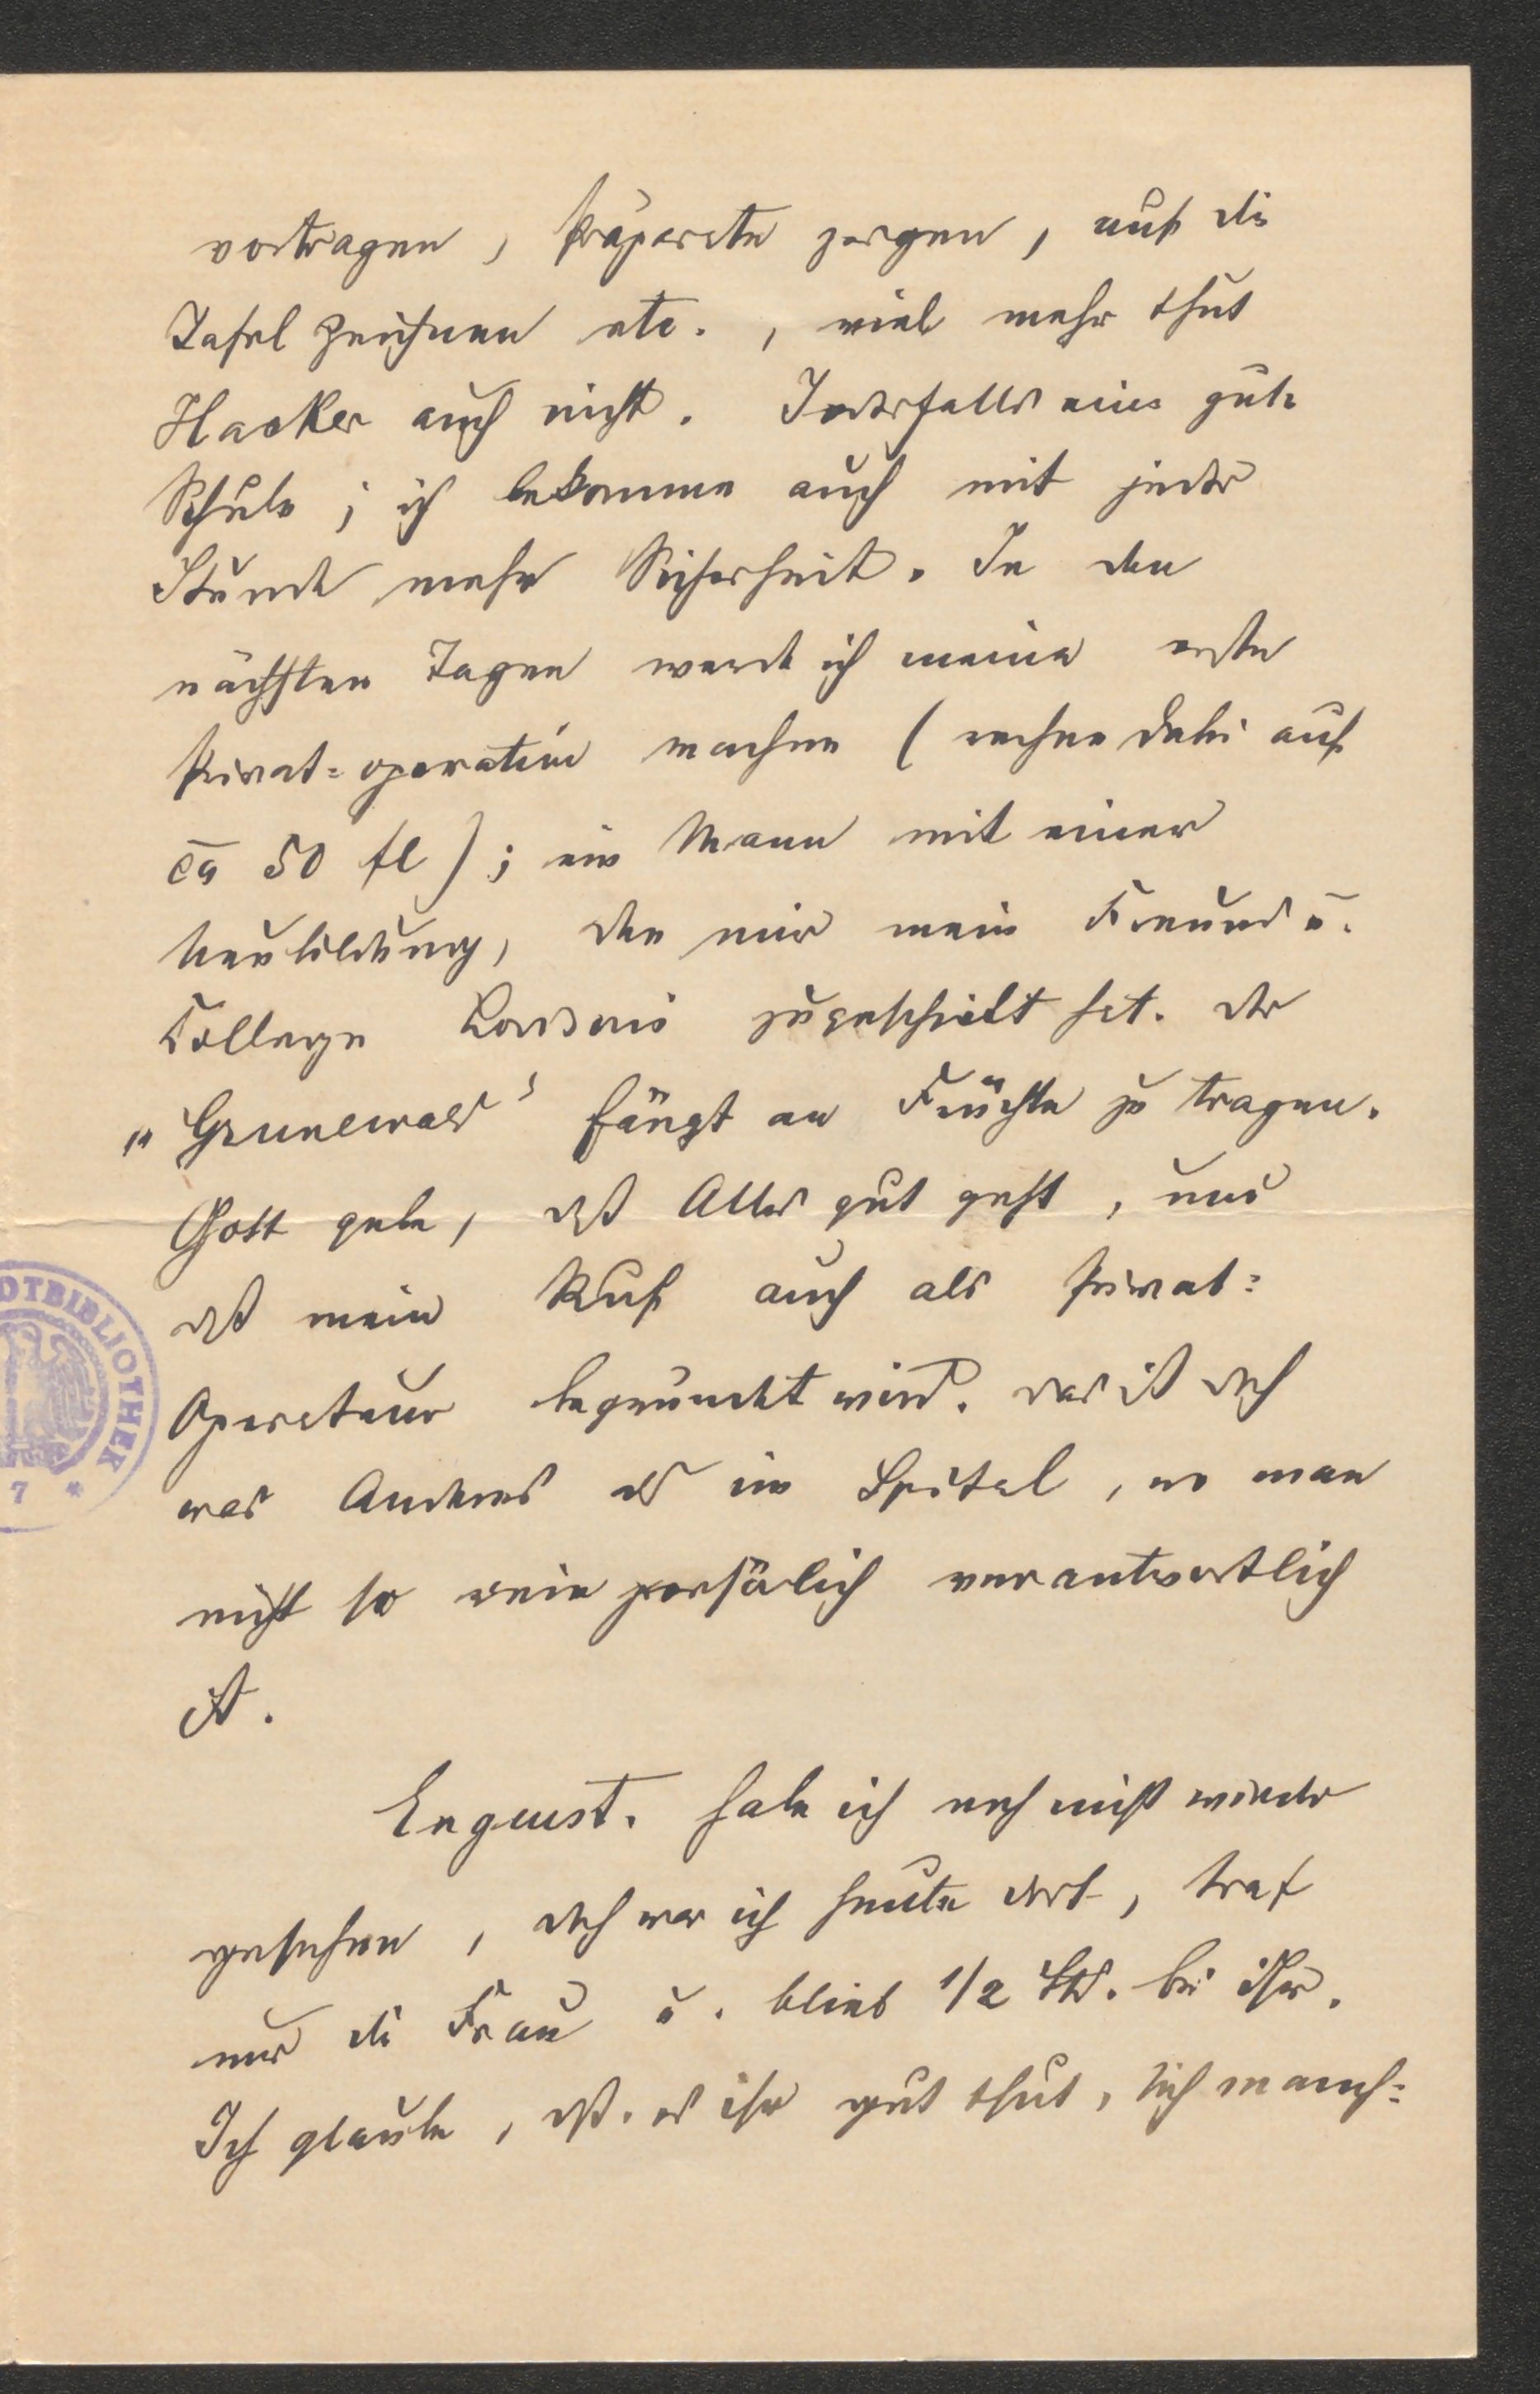 vortragen, Präparate zeigen, auf die
Tafel zeichnen etc., viel mehr thut
Hacker auch nicht. Jedenfalls eine gute
Schule; ich bekomme auch mit jeder
Stunde mehr Sicherheit. In den
nächsten Tagen werde ich meine erste
Privat=operation machen (rechne dabei auf
ca 50 fl); ein Mann mit einer
Neubildung, den mir mein Freund u.
College zugeschickt hat. Der
„Grunewald" fängt an Früchte zu tragen.
Gott gebe, daß Alles gut geht, und
daß mein Ruf auch als Privat=
Operateur begründet wird. Das ist doch
was Anderes als im Spital, wo man
nicht so rein persönlich verantwortlich
ist.
Engerst. habe ich noch nicht wieder
gesehen, doch war ich heute dort, traf
nur die Frau u. blieb 1/2 Std. bei ihr.
Ich glaube, daß es ihr gut thut, sich manch=
OTBIBLIOTHEK
7 *